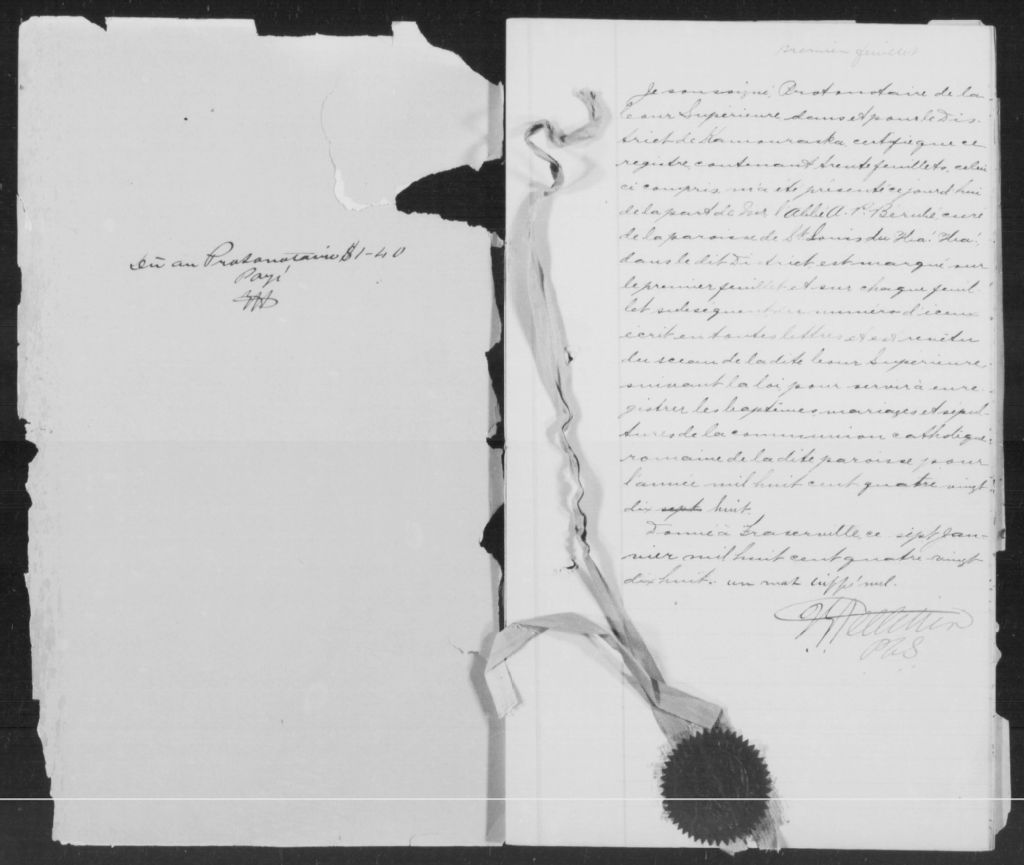 Dû au Protonotaire $1-40
Payé
Premier feuillet
Je soussigné, Protonotaire de la
Cour Supérieure dans et pour le Dis-
trict de Kamouraska, certifie que ce
registre, contenant trente feuillets, celui
ci compris, m'a été présenté ce jourd'hui
de la part de l'Abbé A. P. Bérubé curé
de la paroisse de St Louis du Ha! Ha!
dans le dit District est marqué sur
le premier feuillet et sur chaque feuil
let subséquent numéro d'iceux
écrit en toutes lettres et est revêtu
du sceau de la dite Cour Supérieure,
suivant la loi pour servir à enre-
gistrer les baptêmes, mariages et sépul
tures de la communion catholique
romaine de la dite paroisse pour
l'année mil huit cent quatre vingt
dix sept huit.
Donné à Fraserville, ce sept Jan-
vier mil huit cent quatre vingt
dix huit. un mot nul.
Pelletier
P.C.S.